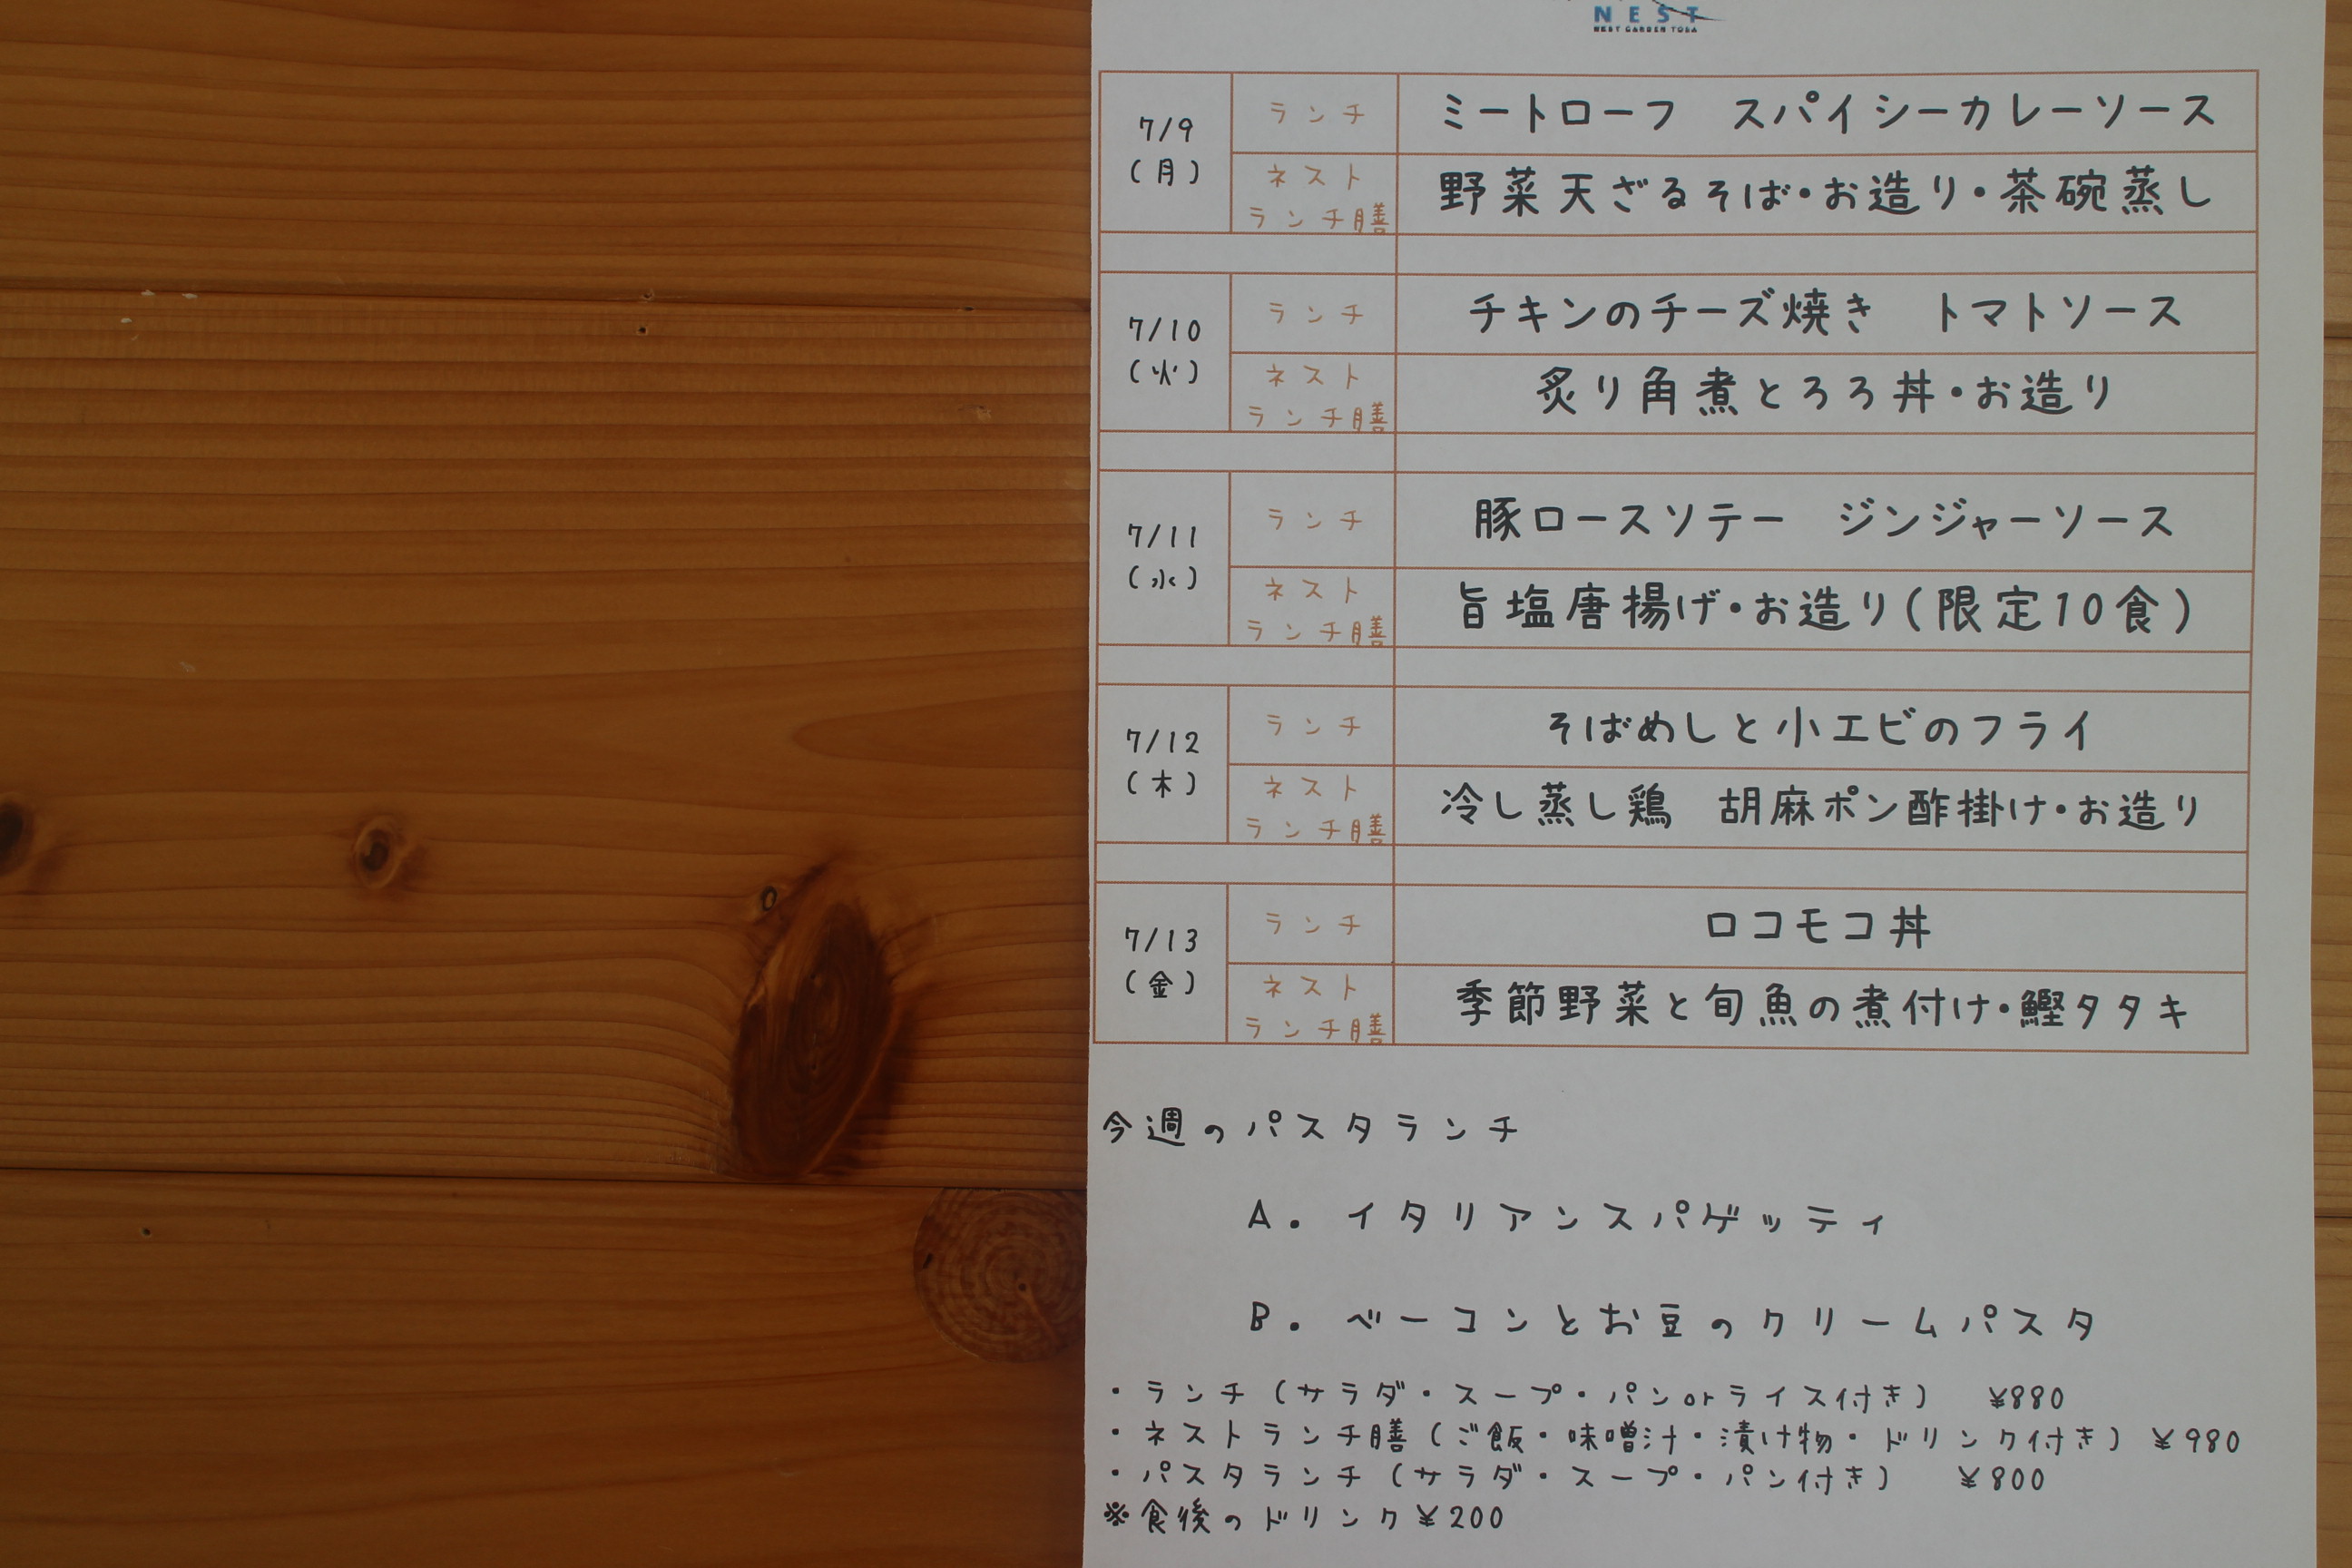 NEST
NEST GARDEN TOGA
7/9
(月)
ランチ
ミートローフ　スパイシーカレーソース
ネスト
ランチ膳
野菜天ざるそば・お造り・茶碗蒸し
7/10
(火)
ランチ
チキンのチーズ焼き　トマトソース
ネスト
ランチ膳
炙り角煮とろろ丼・お造り
7/11
(水)
ランチ
豚ロースソテー　ジンジャーソース
ネスト
ランチ膳
旨塩唐揚げ・お造り(限定10食)
7/12
(木)
ランチ
そばめしと小エビのフライ
ネスト
ランチ膳
冷し蒸し鶏　胡麻ポン酢掛け・お造り
7/13
(金)
ランチ
ロコモコ丼
ネスト
ランチ膳
季節野菜と旬魚の煮付け・鰹タタキ
今週のパスタランチ
A. イタリアンスパゲッティ
B. ベーコンとお豆のクリームパスタ
・ランチ(サラダ・スープ・パンorライス付き)　¥880
・ネストランチ膳(ご飯・味噌汁・漬け物・ドリンク付き) ¥980
・パスタランチ(サラダ・スープ・パン付き)　¥800
※食後のドリンク¥200